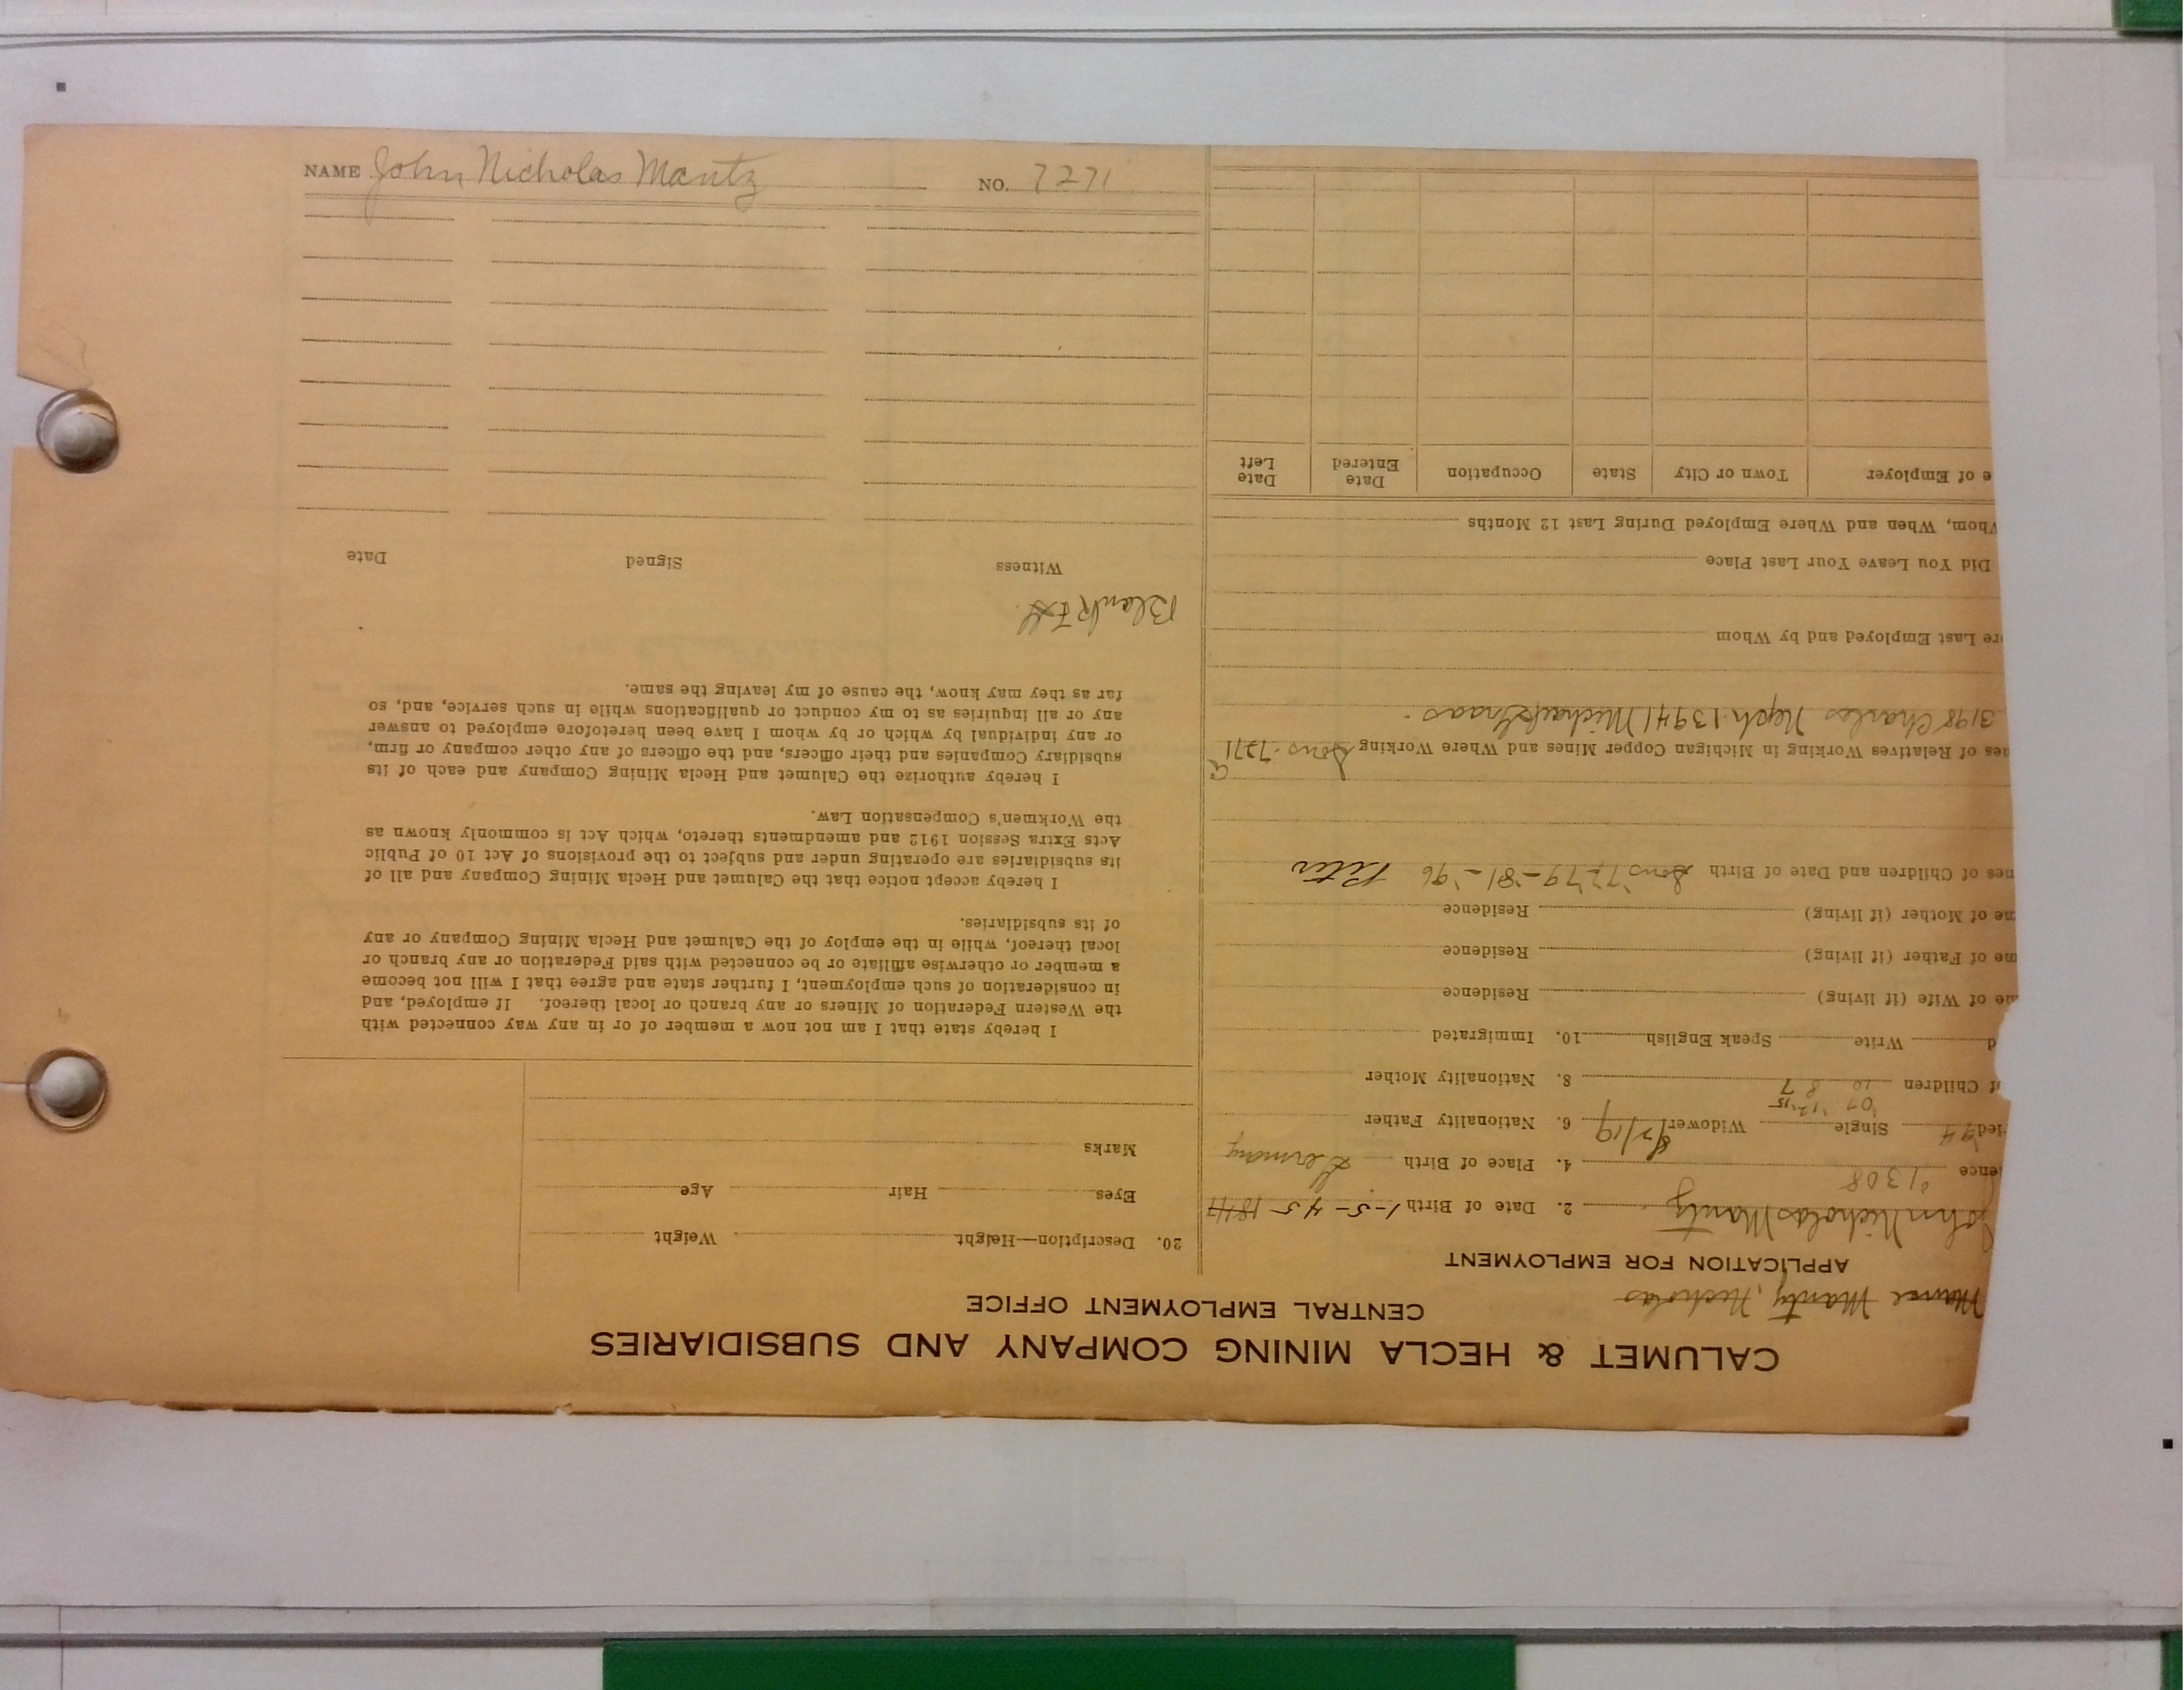 CALUMET & HECLA MINING COMPANY AND SUBSIDIARIES
CENTRAL EMPLOYMENT OFFICE
Mantz, Nicholas
APPLICATION FOR EMPLOYMENT
John Nicholas Mantz 2. Date of Birth 1-5-45 1847
ence 1308 4. Place of Birth Germany
ied 94 Single Widower 6. Nationality Father
'07 '12 '15
f Children 10 8 7 8. Nationality Mother
d Write Speak English 10. Immigrated
me of Wife (if living) Residence
me of Father (if living) Residence
me of Mother (if living) Residence
nes of Children and Date of Birth Sons '77-'79-'81-'96 Peter
nes of Relatives Working in Michigan Copper Mines and Where Working Sons. 7271
3198 Charles Neph. 13941 Michael
re Last Employed and by Whom
Did You Leave Your Last Place
Whom, When and Where Employed During Last 12 Months
e of Employer Town or City State Occupation Date Entered Date Left
20. Description—Height Weight
Eyes Hair Age
Marks
I hereby state that I am not now a member of or in any way connected with
the Western Federation of Miners or any branch or local thereof. If employed, and
in consideration of such employment, I further state and agree that I will not become
a member or otherwise affiliate or be connected with said Federation or any branch or
local thereof, while in the employ of the Calumet and Hecla Mining Company or any
of its subsidiaries.
I hereby accept notice that the Calumet and Hecla Mining Company and all of
its subsidiaries are operating under and subject to the provisions of Act 10 of Public
Acts Extra Session 1912 and amendments thereto, which Act is commonly known as
the Workmen's Compensation Law.
I hereby authorize the Calumet and Hecla Mining Company and each of its
subsidiary Companies and their officers, and the officers of any other company or firm,
or any individual by which or by whom I have been heretofore employed to answer
any or all inquiries as to my conduct or qualifications while in such service, and, so
far as they may know, the cause of my leaving the same.
Blank
Witness Signed Date
NAME John Nicholas Mantz NO. 7271